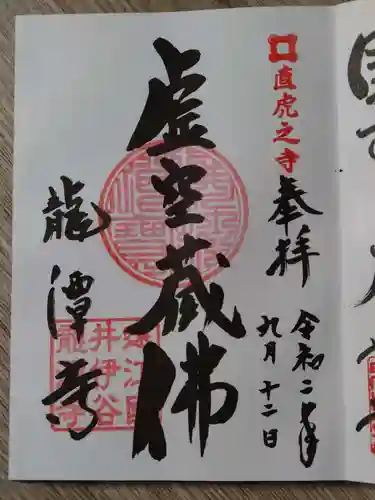 直虎之寺
奉拝
令和二年
九月十二日
虚空蔵佛
龍潭寺
遠江国
井伊谷
龍潭寺